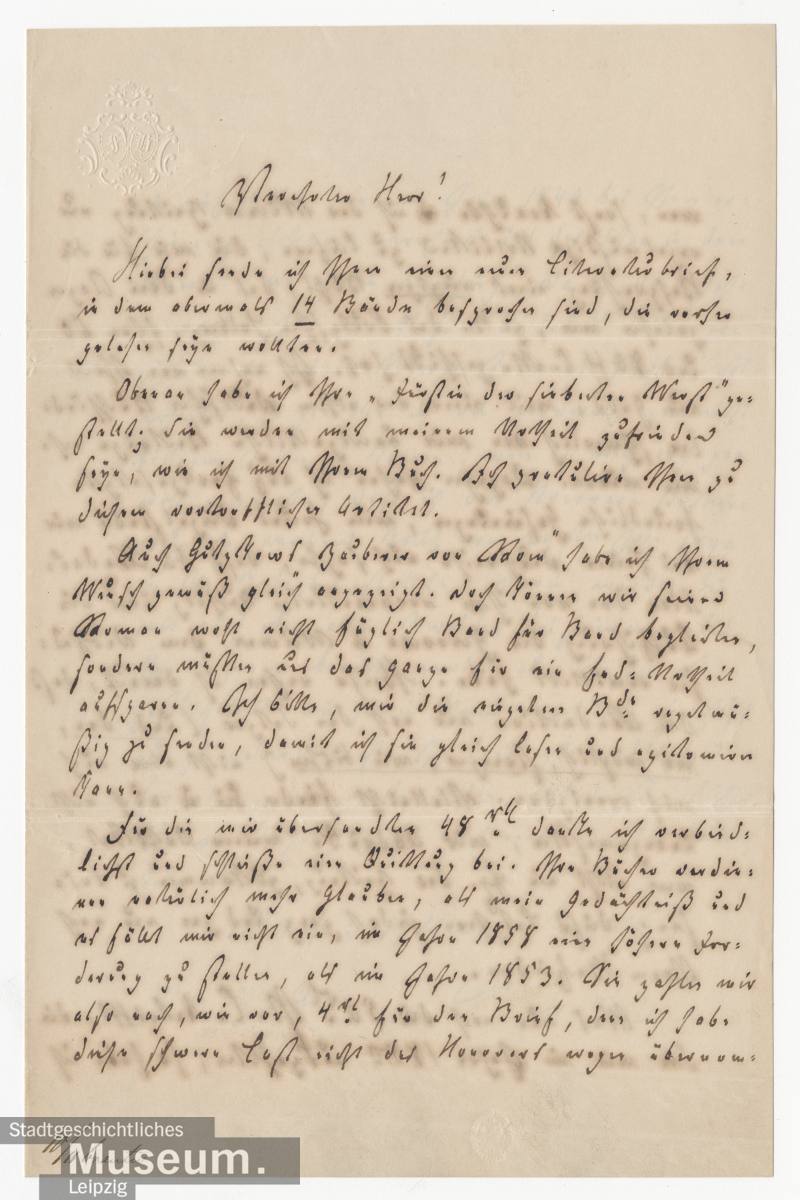 Verehrter Herr!
Hiebei sende ich Ihnen einen neuen Literaturbrief,
in dem abermals 14 Bände besprochen sind, die vorher
gelesen seyn wollten.
Obenan habe ich Ihre „Fürstin der siebenten Werst" ge-
stellt; Sie werden mit meinem Urtheil zufrieden
seyn, wie ich mit Ihrem Buch. Ich gratulire Ihnen zu
diesem vortrefflichen Artikel.
Auch Gutzkows „Zauberer von Rom" habe ich Ihrem
Wunsch gemäß gleich angezeigt. Doch können wir seinen
Roman wohl nicht füglich Band für Band begleiten,
sondern müßten uns das ganze für ein End-Urtheil
aufsparen. Ich bitte, mir die einzelnen Bde regelmä-
ßig zu senden, damit ich sie gleich lesen und epitomiren
kann.
Für die mir übersandten 48 rtl danke ich verbind-
lichst und schließe eine Quittung bei. Ihre Bücher verdie-
nen natürlich mehr Glauben, als mein Gedächtniß und
es fällt mir nicht ein, im Jahre 1858 eine höhere For-
derung zu stellen, als im Jahre 1853. Sie zahlen mir
also nach, wie vor, 4 rtl für den Brief, denn ich habe
diese schwere Last nicht des Honorars wegen übernom-
Stadtgeschichtliches
Museum.
Leipzig